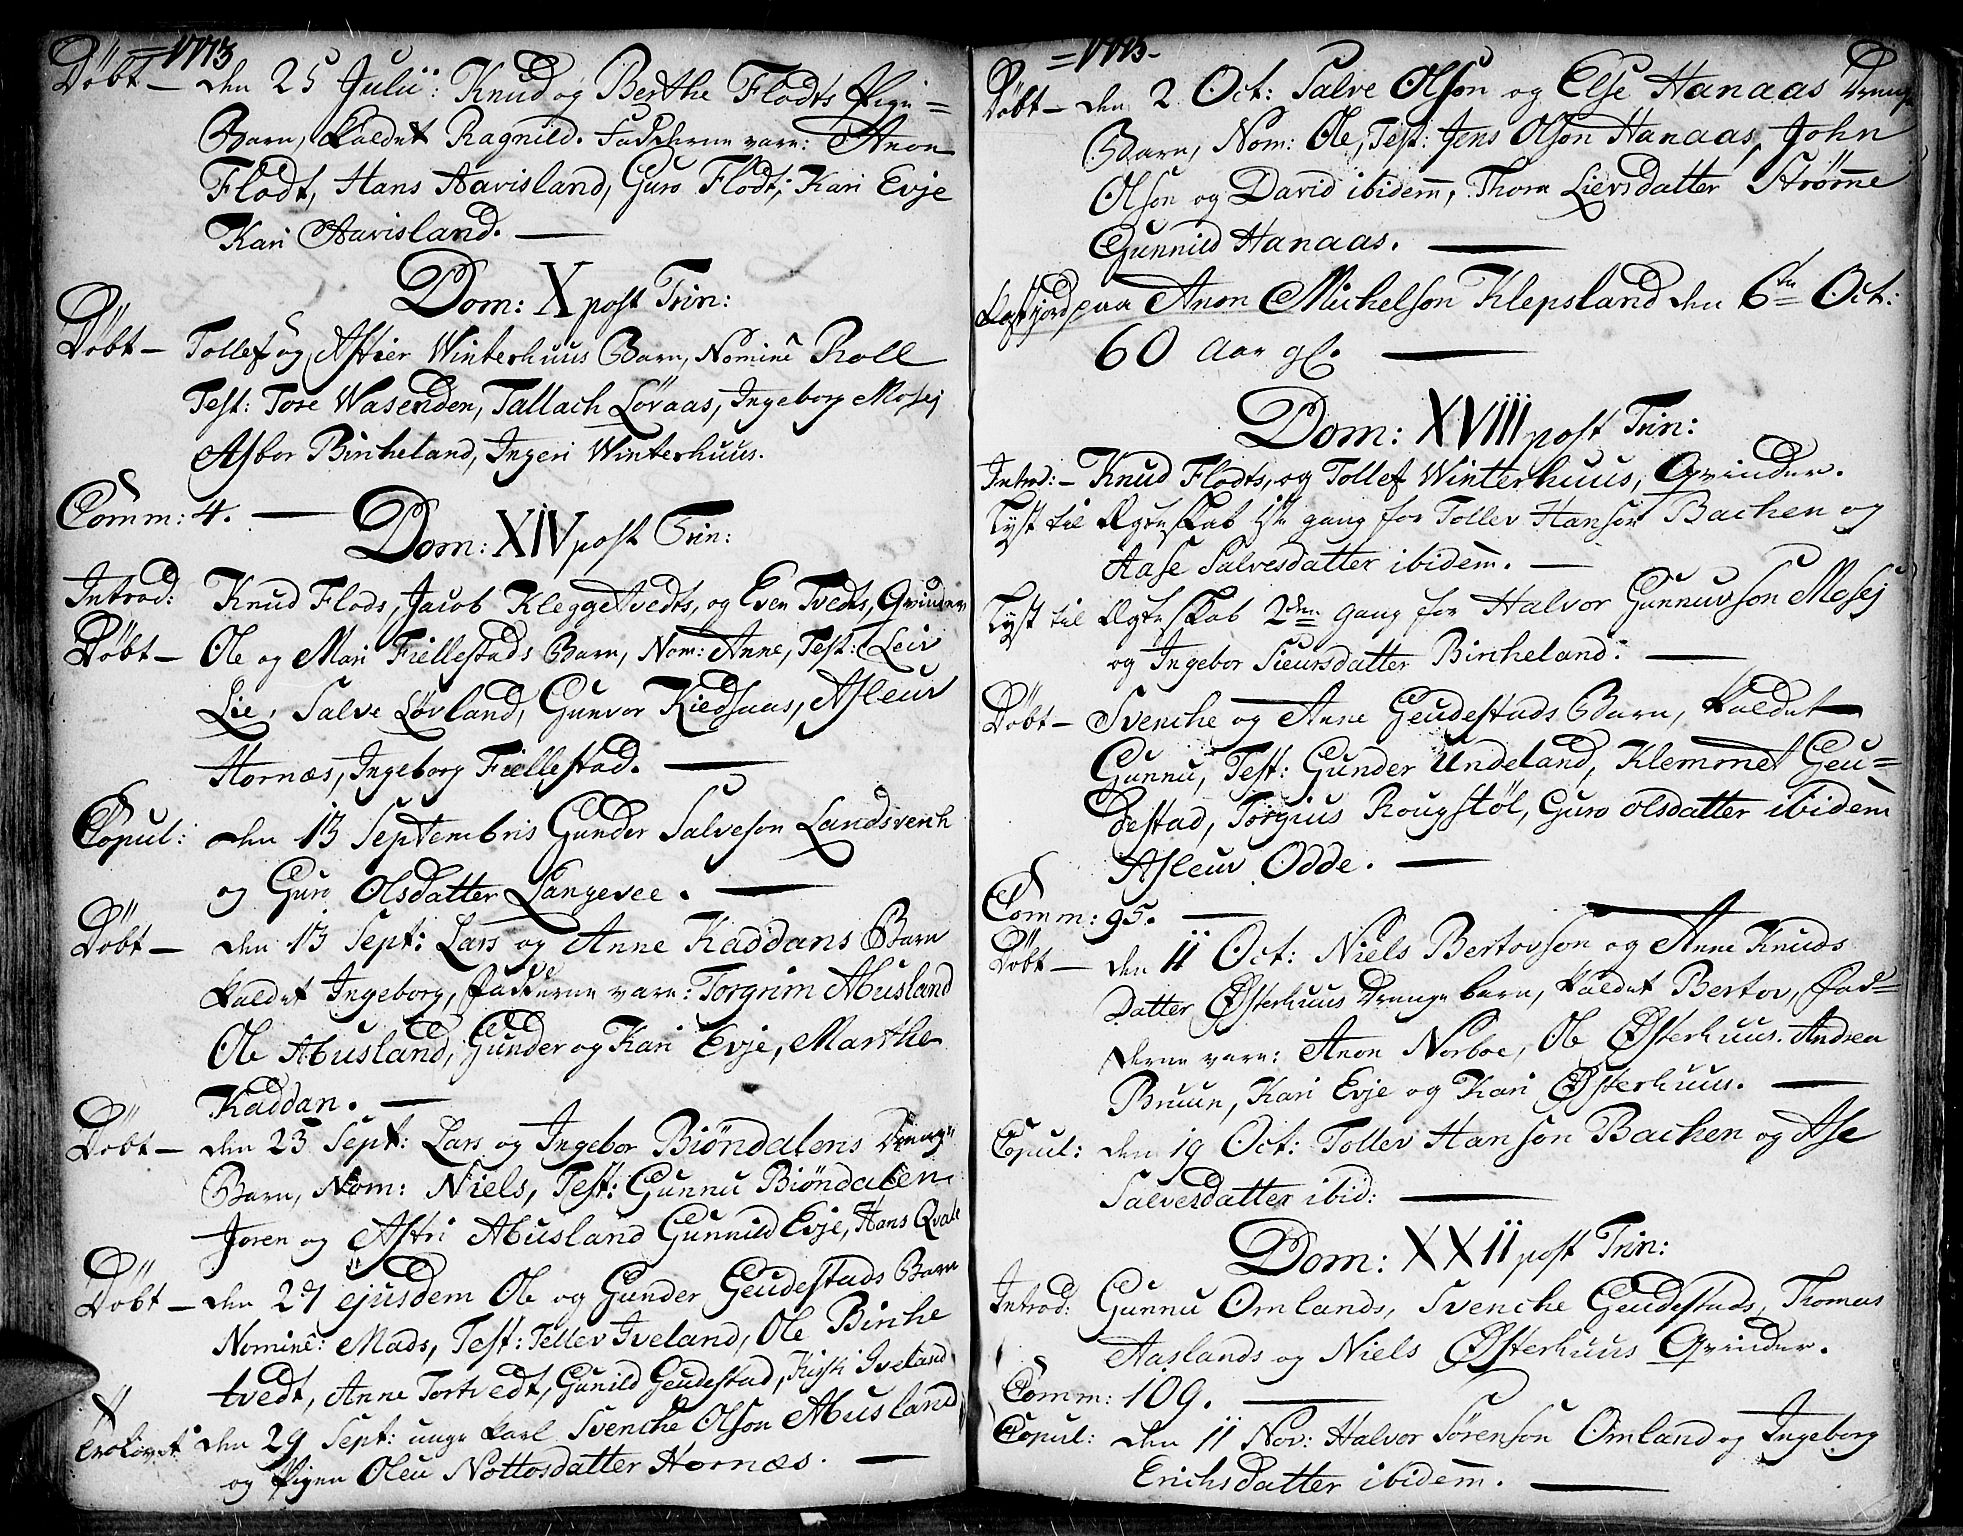 =1773
Döbt — den 25 Julii: Knud og Berthe Flodts Pige-
Barn, kaldet Ragnild. Fadderne vare: Anon
Flodt, Hans Aavisland, Guro Flodt, Kari Evje
Kari Aavisland. —
Dom: X post Trin:
Döbt — Tollef og Astier Winterhuus Barn, Nomine Roll
Test: Tore Wasenden, Tallach Löraas, Ingeborg Mosej
Asbor Birkeland, Ingeri Winterhuus.
Comm: 4. —
Dom: XIV post Trin:
Introd: Knud Flods, Jacob Kleggetvedts, og Even Tvedts, Qvinder
Döbt — Ole og Mari Fiellestads Barn, Nom: Anne, Test: Leiv
Lie, Salve Lövland, Gunvor Kiedsaas, Asleur
Hornæs, Ingeborg Fiellestad. —
Copul: den 13 Septembris Gunder Salveson Landsverch
og Guro Olsdatter Langevee. —
Döbt — den 13 Sept: Lars og Anne Kaddans Barn
kaldet Ingeborg, Fadderne vare: Torgrim Abusland
Ole Abusland, Gunder og Kari Evje, Marthe
Kaddan. —
Döbt — den 23 Sept: Lars og Ingebor Biöndalens Drenge
Barn, Nom: Niels, Test: Gunnu Biöndalen
Joren og Astri Abusland Gunnild Evje, Hans Qvale
Döbt — den 27 ejusdem Ole og Gunder Geudestads Barn
Nomine: Mads, Test: Tellev Iveland, Ole Birche
tvedt, Anne Tortvedt, Gunild Geudestad, Kisti Iveland
Trolovet den 29 Sept: unge Karl Svenche Olson Abusland
og Pigen Oleu Nottosdatter Hornæs. —
=1773-
Döbt — den 2 Oct: Salve Olson og Else Hanaas Drenge
Barn, Nom: Ole, Test: Jens Olson Hanaas, John
Olson og David ibidem, Thora Liersdatter Strømme
Gunnild Hanaas. —
Kast jord paa Anon Michelson Klepsland den 6te Oct:
60 Aar gl. —
Dom: XVIII post Trin:
Introd: — Knud Flodts, og Tollef Winterhuus, Qvinder.
Lyst til Ægteskab 1ste gang for Tollev Hanson Bachen og
Aase Salvesdatter ibidem. —
Lyst til Ægteskab 2den gang for Halvor Gunnuvson Mosej
og Ingebor Sieursdatter Birkeland. —
Döbt — Svenche og Anne Geudestads Barn, kaldet
Gunnu, Test: Gunder Undeland, Klemmet Geu=
destad, Torgius Rougstöl, Guro Olsdatter ibidem
Asleur Odde. —
Comm: 95. —
Döbt — den 11 Oct: Niels Bertovson og Anne Knuds
Datter Østerhuus Drenge barn, kaldet Bertov, Fad=
derne vare: Anon Norboe, Ole Østerhuus. Andrea
Bruun, Kari Evje og Kari Østerhuus. —
Copul: den 19 Oct: Tollev Hanson Bachen og Ase
Salvesdatter ibid: —
Dom: XXII post Trin:
Introd: Gunnu Omlands, Svenche Geudestads, Thomas
Aaslands og Niels Østerhuus Qvinder.
Comm: 109. —
Copul: den 11 Nov: Halvor Sörenson Omland og Ingeborg
Erichsdatter ibidem. —